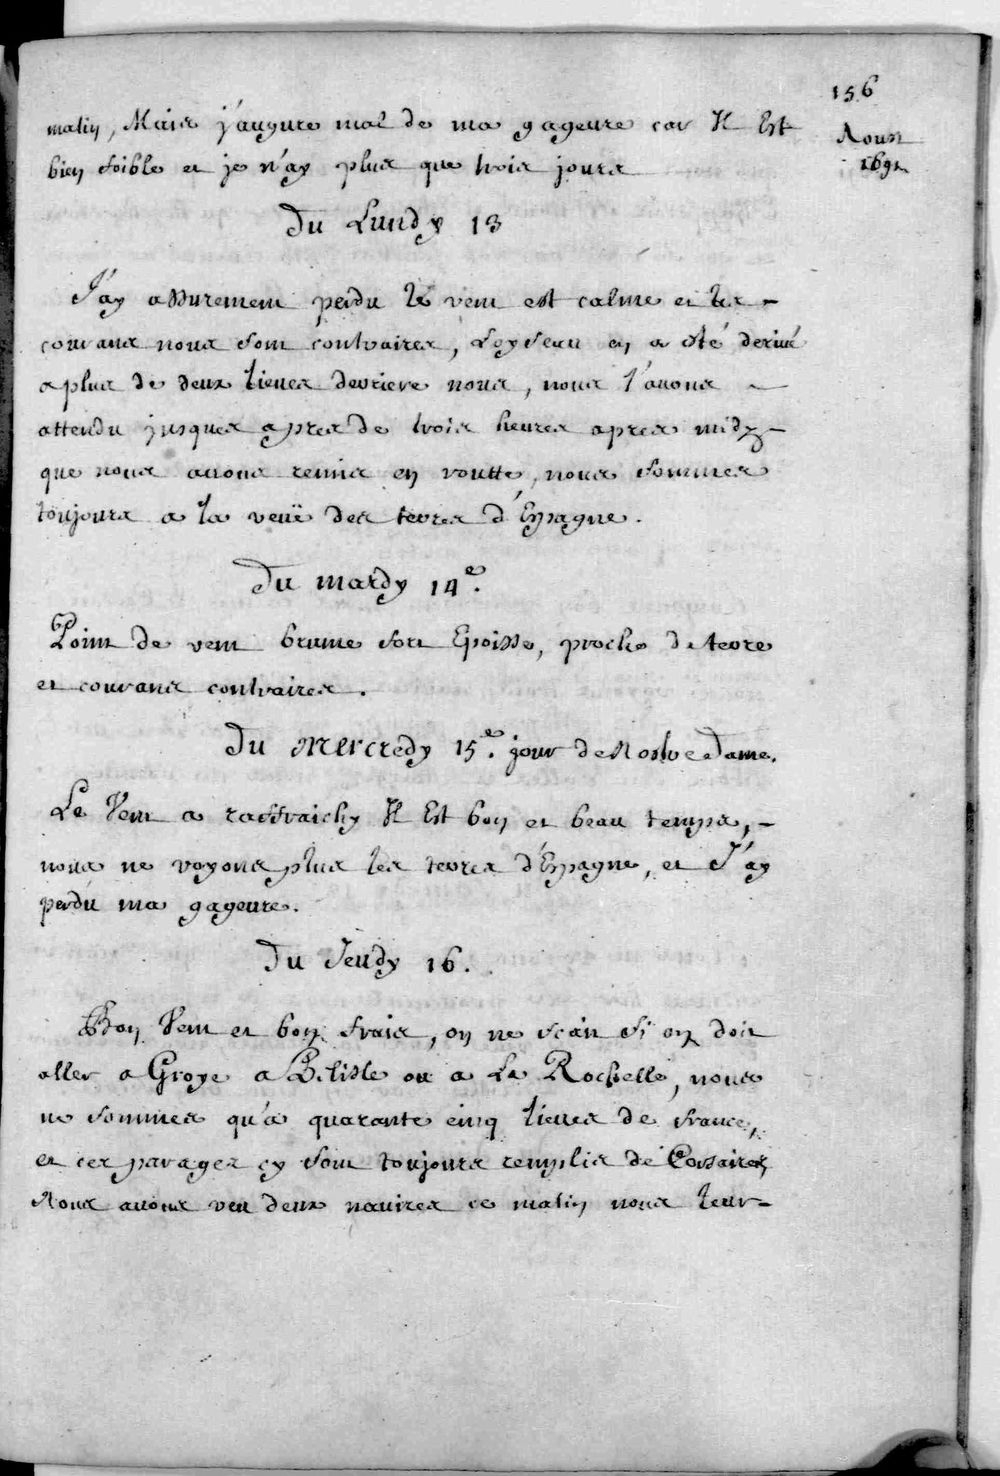 156
Aoust
169
matin, Mais j'augure mal de ma gageure car Il Est
bien foible et je n'ay plus que trois jours
Du Lundy 13
J'ay assurement perdu le vent est calme et les
courans nous sont contraires, Loyseau en a esté derivé
a plus de deux lieues derriere nous, nous l'avons
attendu jusques apres de trois heures apres midy
que nous avons remis en routte, nous sommes
toujours a la veuë des terres d'Espagne.
Du mardy 14e.
Point de vent brume fort Epoisse, proche de terre
et courans contraires.
Du Mercredy 15e. jour de Nostre Dame.
Le Vent a raffraichy Il Est bon et beau temps,
nous ne voyons plus les terres d'Espagne, et J'ay
perdu ma gageure.
Du Jeudy 16.
Bon Vent et bon frais, on ne scait si on doit
aller a Groye a Belisle ou a La Rochelle, nous
ne sommes qu'a quarante cinq lieues de france,
et ces parages cy sont toujours remplis de Corsaires,
Nous avons veu deux navires ce matin nous leur